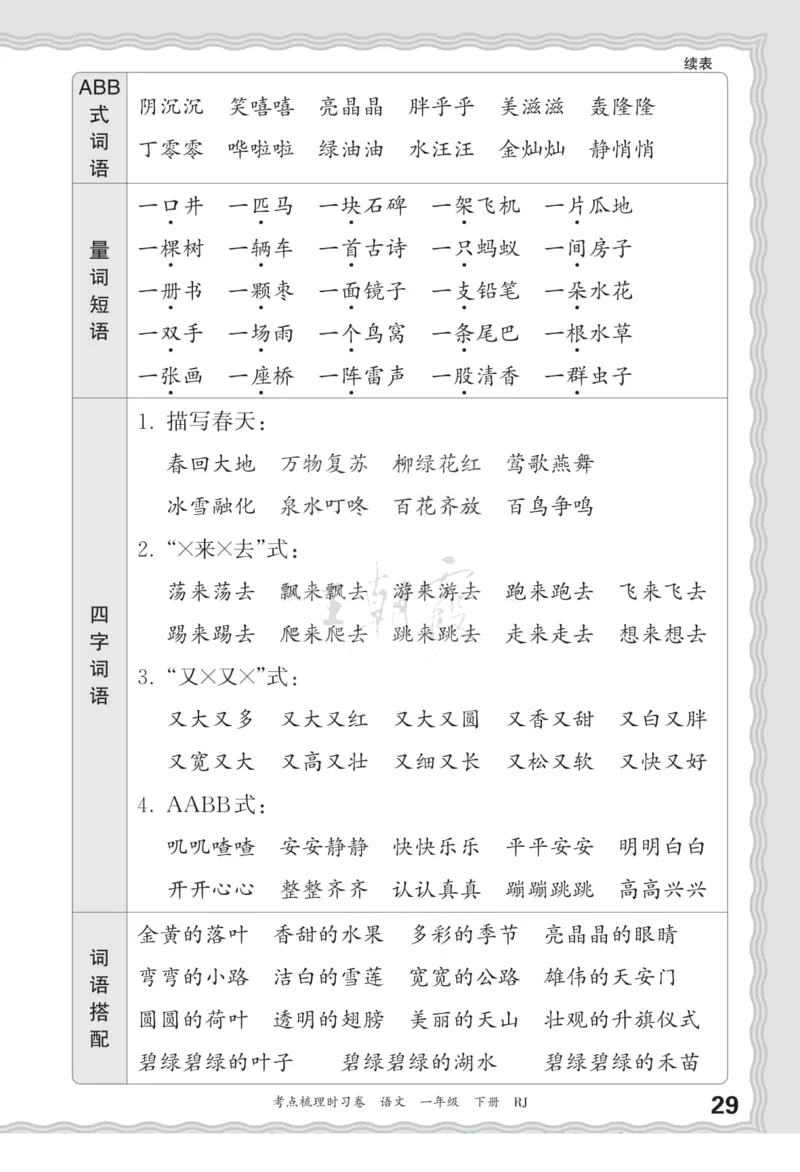 续表
ABB式词语
阴沉沉 笑嘻嘻 亮晶晶 胖乎乎 美滋滋 轰隆隆
丁零零 哗啦啦 绿油油 水汪汪 金灿灿 静悄悄
量词短语
一口井 一匹马 一块石碑 一架飞机 一片瓜地
一棵树 一辆车 一首古诗 一只蚂蚁 一间房子
一册书 一颗枣 一面镜子 一支铅笔 一朵水花
一双手 一场雨 一个鸟窝 一条尾巴 一根水草
一张画 一座桥 一阵雷声 一股清香 一群虫子
四字词语
1. 描写春天：
春回大地 万物复苏 柳绿花红 莺歌燕舞
冰雪融化 泉水叮咚 百花齐放 百鸟争鸣
2. “×来×去”式：
荡来荡去 飘来飘去 游来游去 跑来跑去 飞来飞去
踢来踢去 爬来爬去 跳来跳去 走来走去 想来想去
3. “又×又×”式：
又大又多 又大又红 又大又圆 又香又甜 又白又胖
又宽又大 又高又壮 又细又长 又松又软 又快又好
4. AABB式：
叽叽喳喳 安安静静 快快乐乐 平平安安 明明白白
开开心心 整整齐齐 认认真真 蹦蹦跳跳 高高兴兴
词语搭配
金黄的落叶 香甜的水果 多彩的季节 亮晶晶的眼睛
弯弯的小路 洁白的雪莲 宽宽的公路 雄伟的天安门
圆圆的荷叶 透明的翅膀 美丽的天山 壮观的升旗仪式
碧绿碧绿的叶子 碧绿碧绿的湖水 碧绿碧绿的禾苗
王朝霞
考点梳理时习卷 语文 一年级 下册 RJ
29